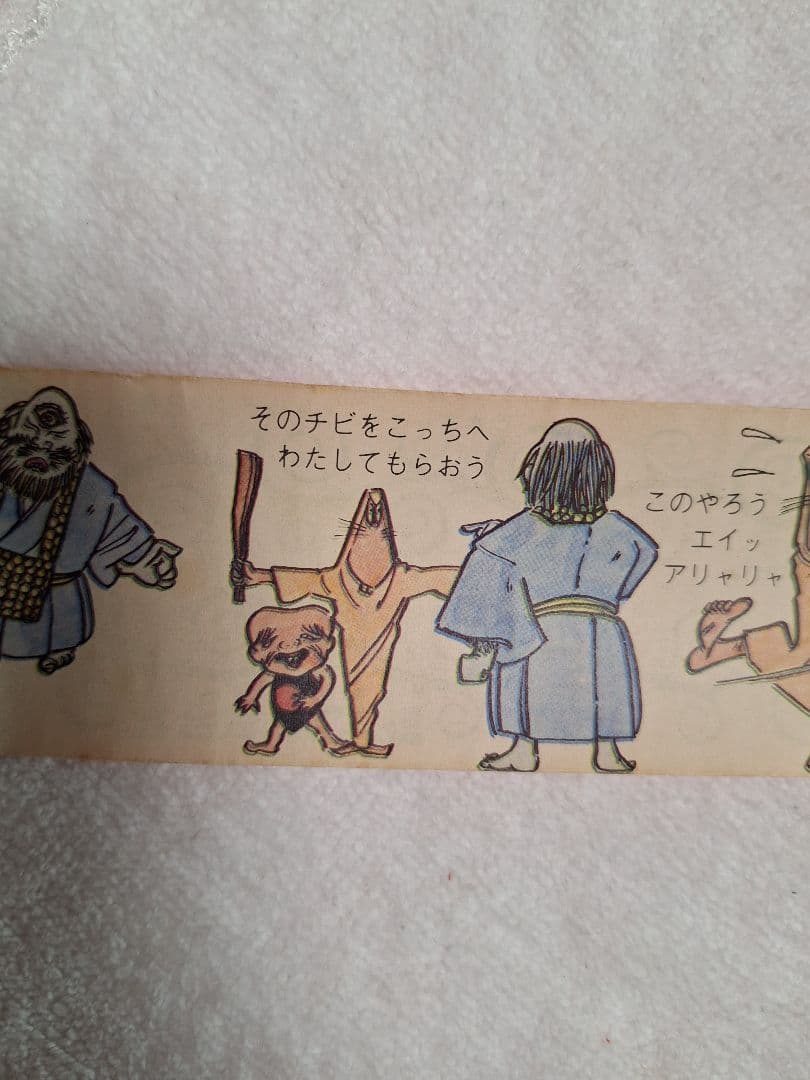 そのチビをこっちへ
わたしてもらおう
このやろう
エイッ
アリャリャ